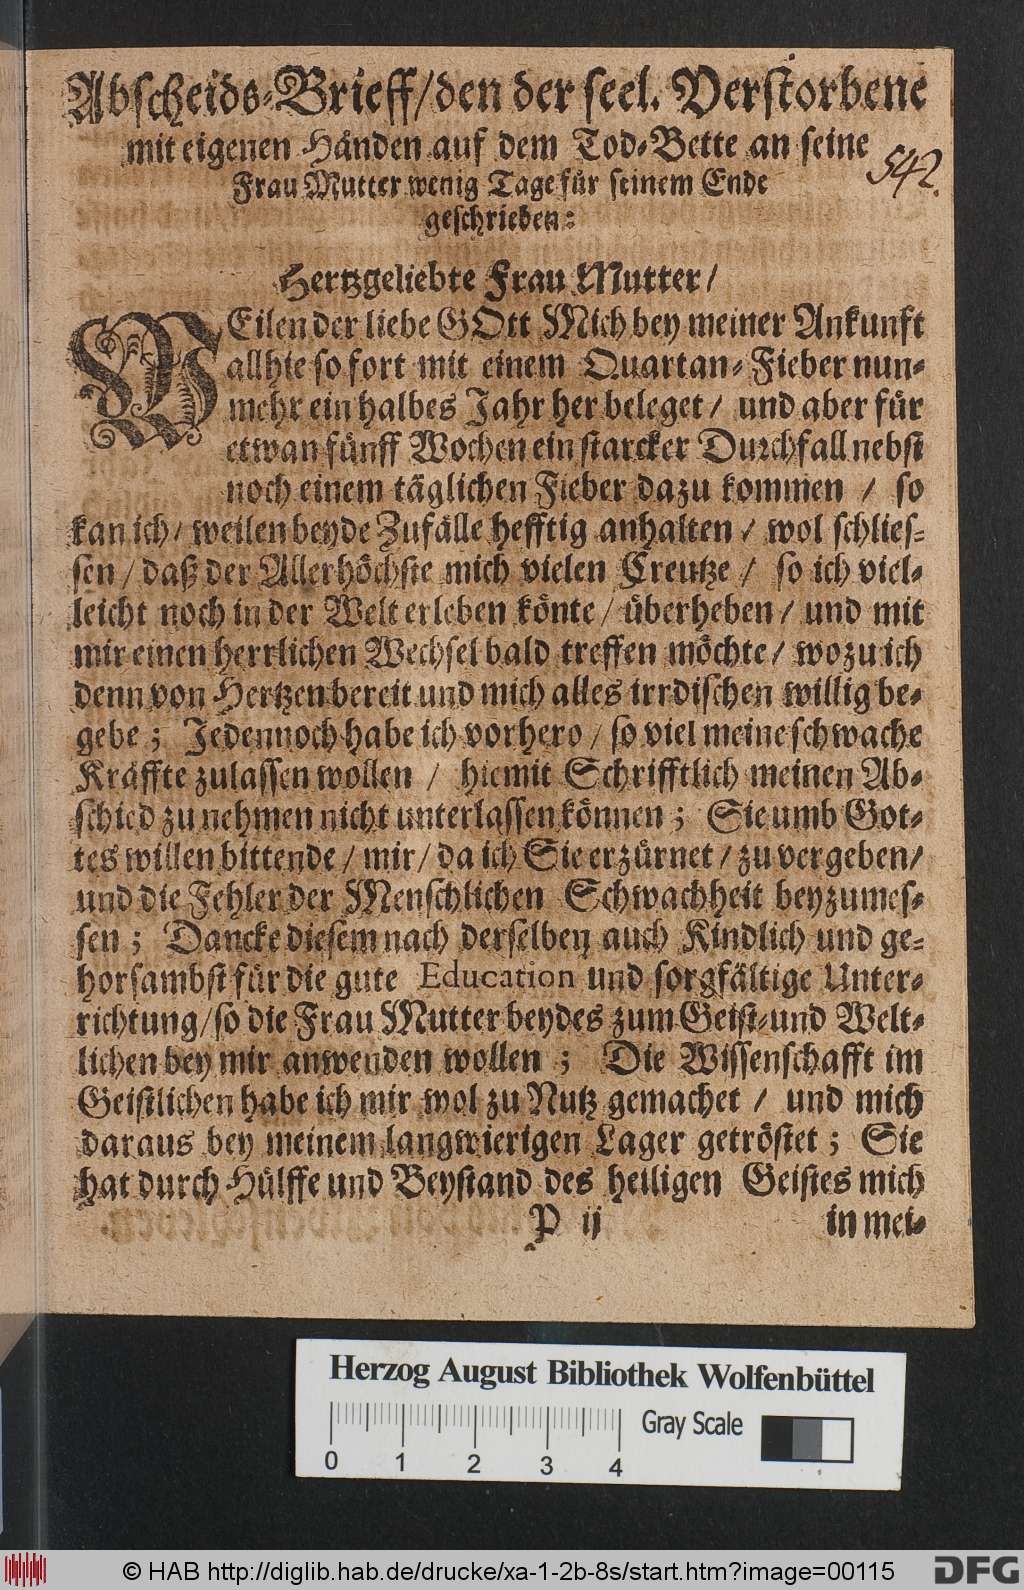 Abscheids-Brieff/den der seel. Verstorbene
mit eigenen Händen auf dem Tod-Bette an seine
542.
Frau Mutter wenig Tage für seinem Ende
geschrieben:
Hertzgeliebte Frau Mutter/
WEilen der liebe GOtt Mich bey meiner Ankunft
allhie so fort mit einem Quartan-Fieber nun-
mehr ein halbes Jahr her beleget/ und aber für
etwan fünff Wochen ein starcker Durchfall nebst
noch einem täglichen Fieber dazu kommen / so
kan ich/ weilen beyde Zufälle hefftig anhalten/ wol schlies-
sen/ daß der Allerhöchste mich vielen Creutze/ so ich viel-
leicht noch in der Welt erleben könte/ überheben/ und mit
mir einen herrlichen Wechsel bald treffen möchte/ wozu ich
denn von Hertzen bereit und mich alles irrdischen willig be-
gebe; Jedennoch habe ich vorhero/ so viel meine schwache
Kräffte zulassen wollen / hiemit Schrifftlich meinen Ab-
schied zu nehmen nicht unterlassen können; Sie umb Got-
tes willen bittende/ mir/ da ich Sie erzürnet/ zu vergeben/
und die Fehler der Menschlichen Schwachheit beyzumes-
sen; Dancke diesem nach derselben auch Kindlich und ge-
horsambst für die gute Education und sorgfältige Unter-
richtung/so die Frau Mutter beydes zum Geist-und Welt-
lichen bey mir anwenden wollen; Die Wissenschafft im
Geistlichen habe ich mir wol zu Nutz gemachet/ und mich
daraus bey meinem langwierigen Lager getröstet; Sie
hat durch Hülffe und Beystand des heiligen Geistes mich
P ij in mei-
Herzog August Bibliothek Wolfenbüttel
Gray Scale
0 1 2 3 4
© HAB http://diglib.hab.de/drucke/xa-1-2b-8s/start.htm?image=00115
DFG